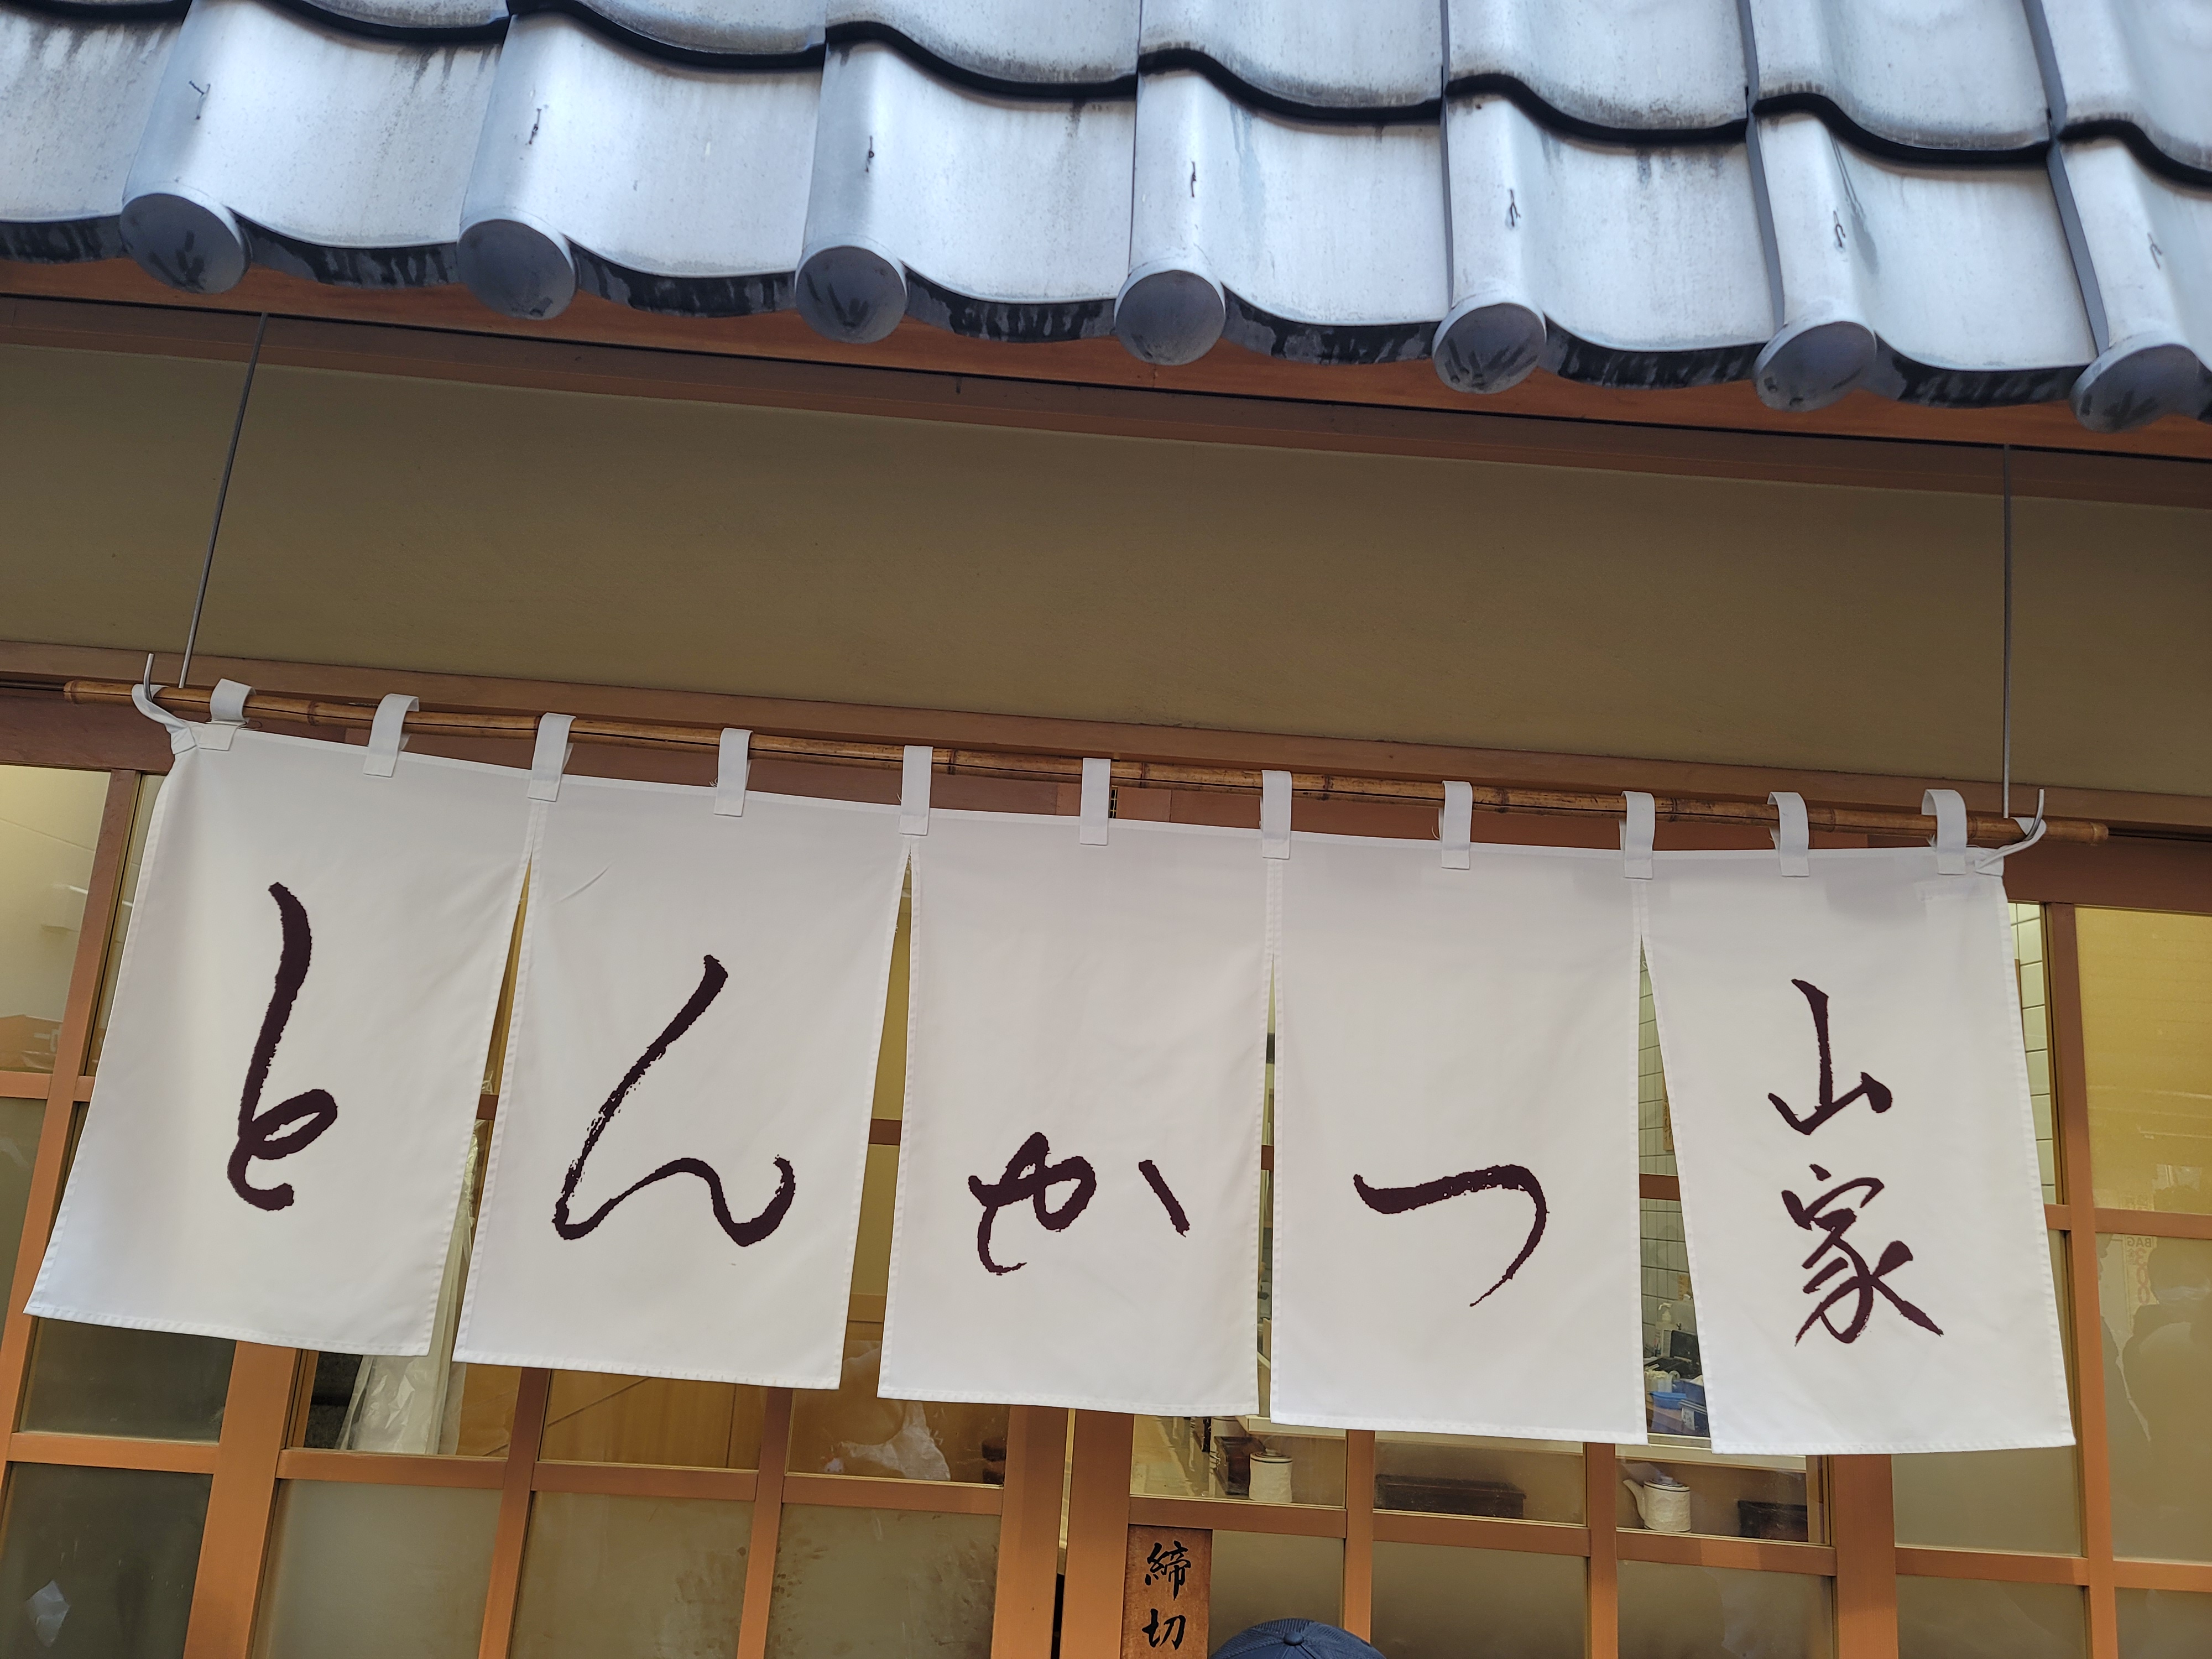 とんかつ
山家
締切